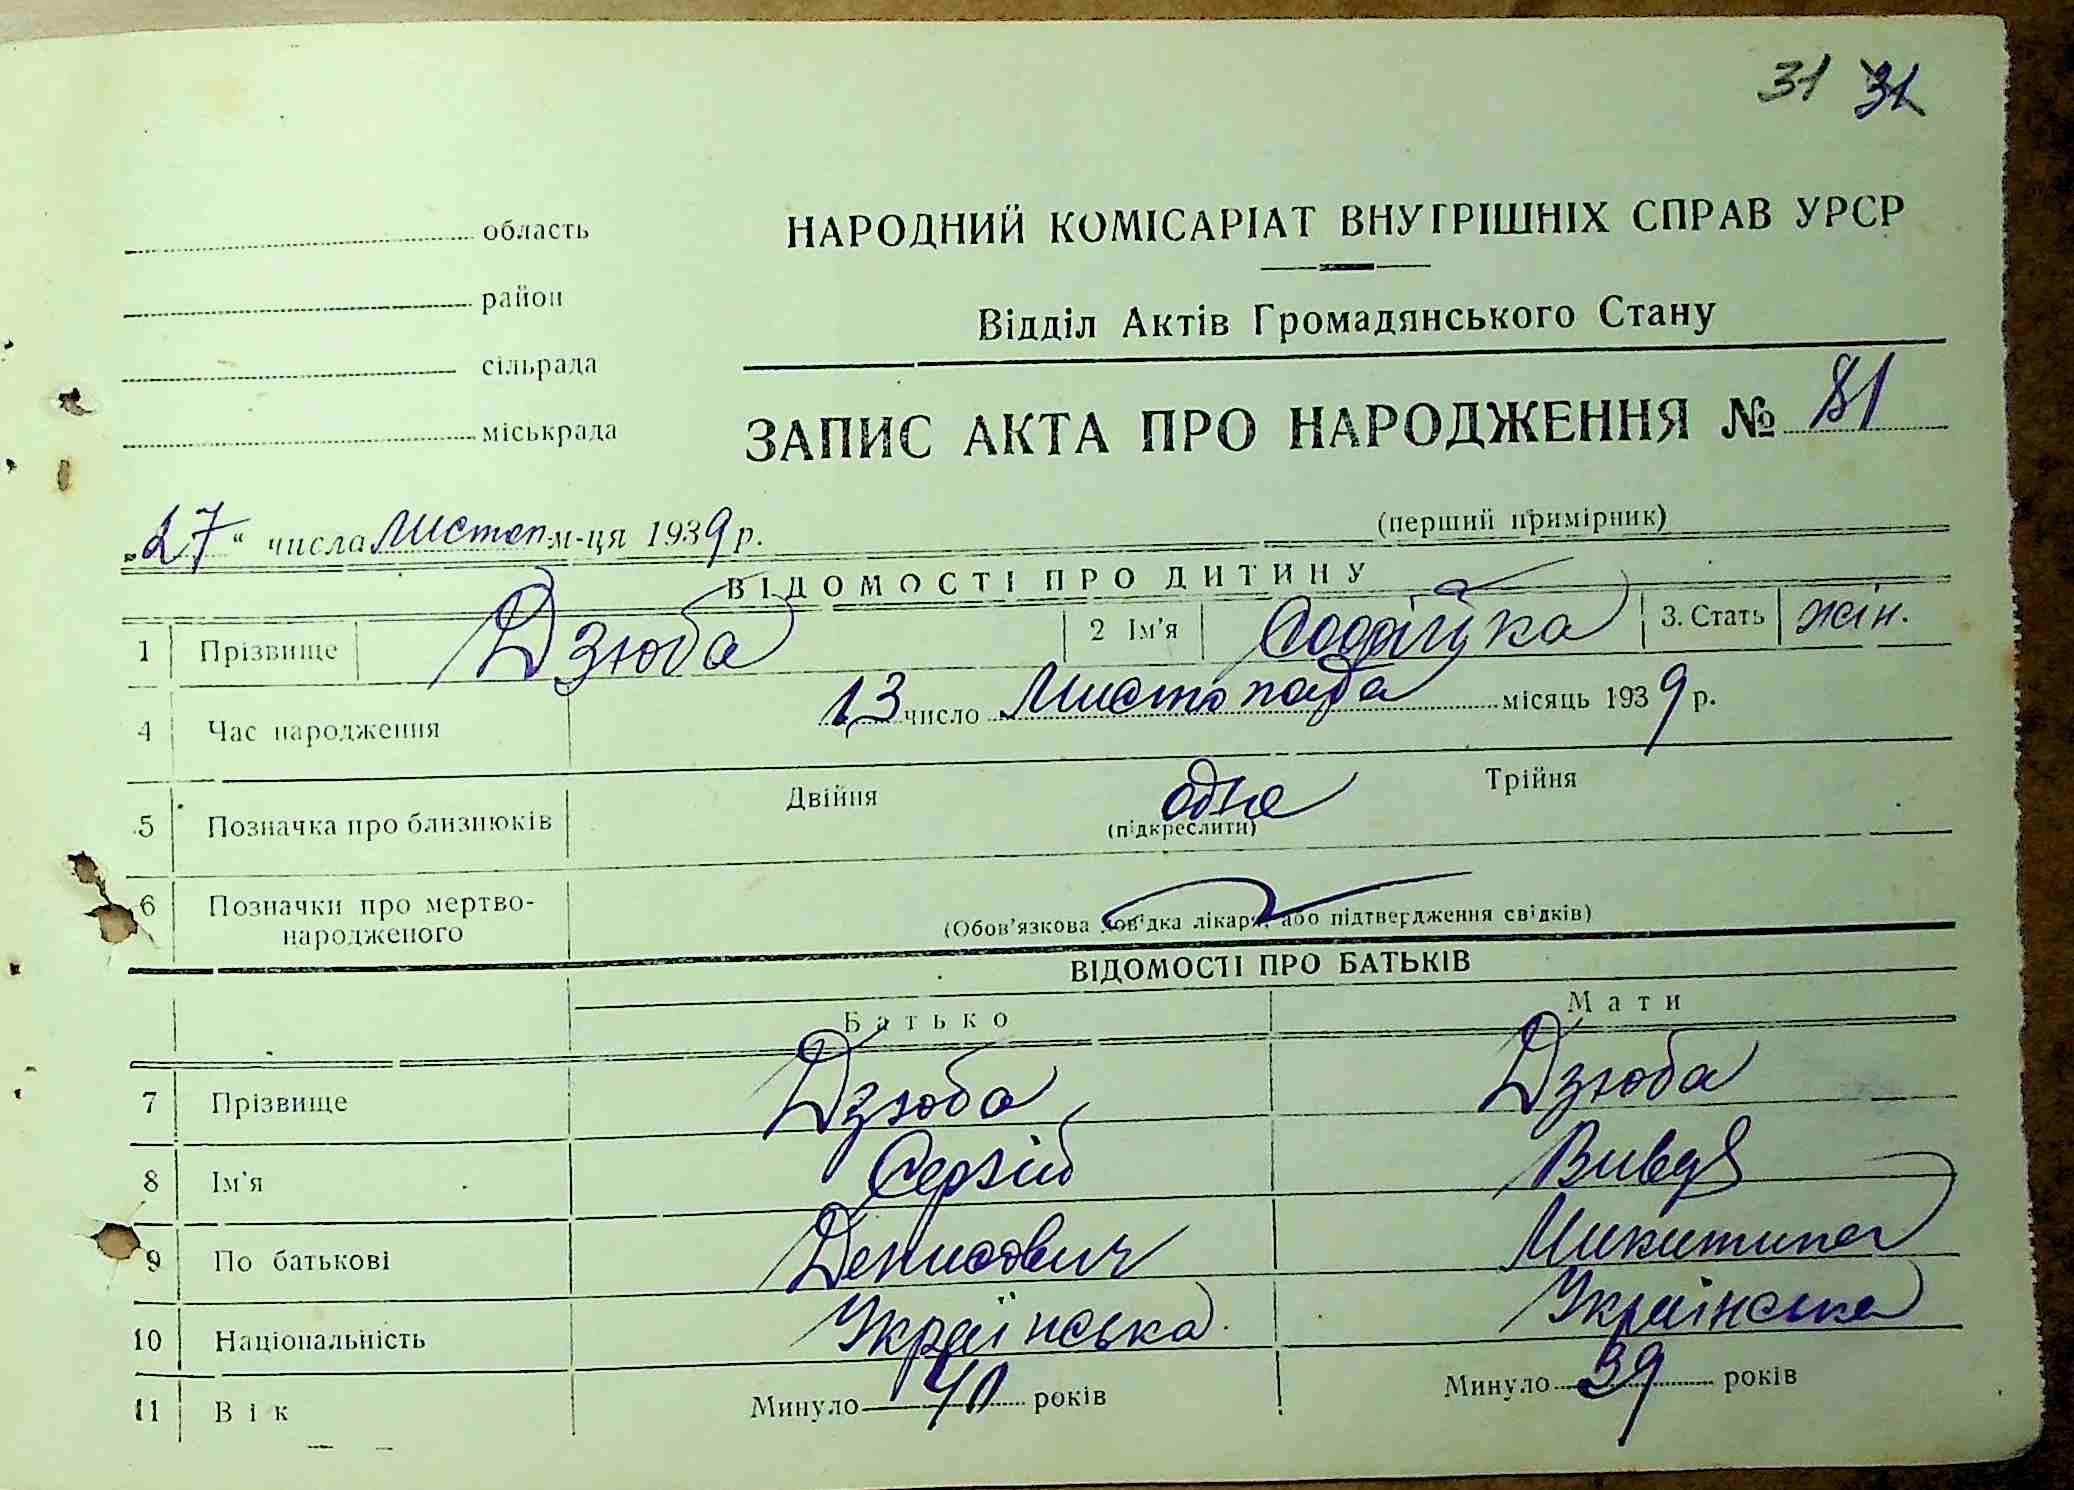 31 31
область
НАРОДНИЙ КОМІСАРІАТ ВНУТРІШНІХ СПРАВ УРСР
район
Відділ Актів Громадянського Стану
сільрада
міськрада
ЗАПИС АКТА ПРО НАРОДЖЕННЯ № 81
„27“ числа листоп м-ця 1939 р.
(перший примірник)
ВІДОМОСТІ ПРО ДИТИНУ
1 Прізвище Дзюба 2 Ім'я 3. Стать жін.
4 Час народження 13 число Листопада місяць 1939 р.
5 Позначка про близнюків Двійня одне Трійня
(підкреслити)
6 Позначки про мертво-
народженого
(Обов'язкова довідка лікаря, або підтвердження свідків)
ВІДОМОСТІ ПРО БАТЬКІВ
Батько Мати
7 Прізвище Дзюба Дзюба
8 Ім'я Сергій
9 По батькові Денисович Микитина
10 Національність Українська Українська
11 Вік Минуло 40 років Минуло 39 років